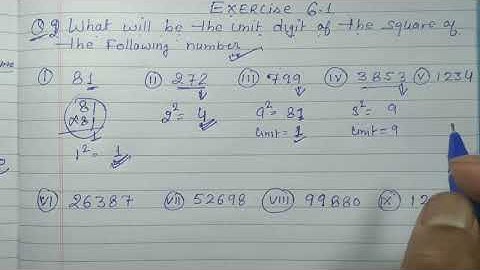 Exercise 6.1
Q2 What will be the unit digit of the square of
the following number
(i) 81 (ii) 272 (iii) 799 (iv) 3853 (v) 1234
81 2² = 4 9² = 81 3² = 9
×81 Unit = 1 Unit = 9
1
1² = 1
(vi) 26387 (vii) 52698 (viii) 99880 (ix) 12